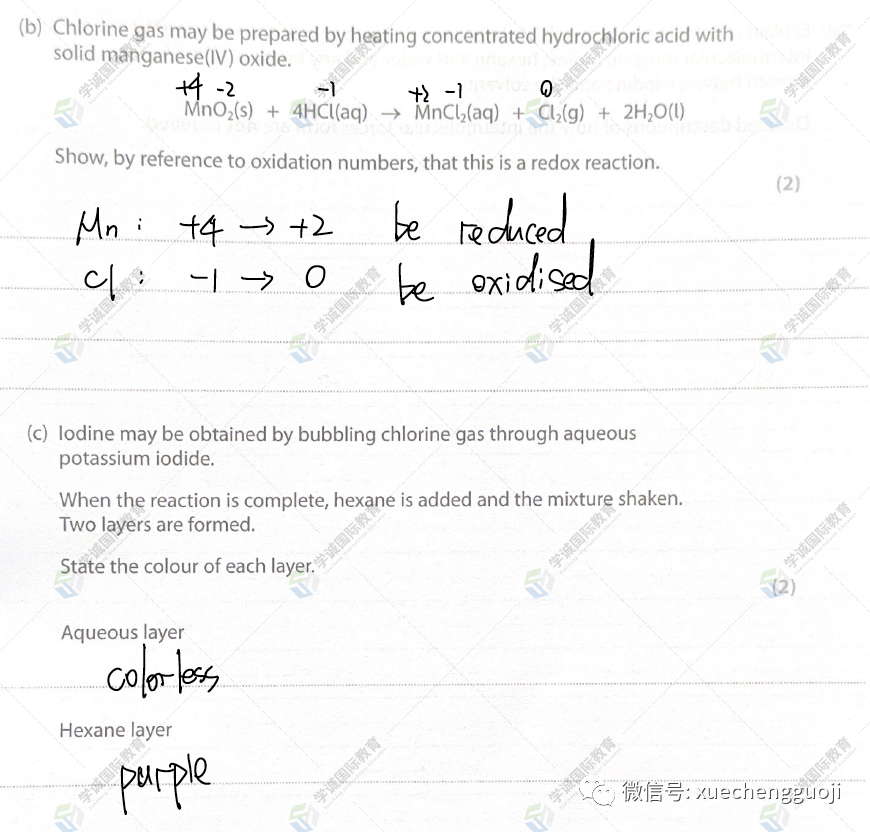 (b) Chlorine gas may be prepared by heating concentrated hydrochloric acid with
solid manganese(IV) oxide.
+4 -2 -1 +2 -1 0
MnO₂(s) + 4HCl(aq) → MnCl₂(aq) + Cl₂(g) + 2H₂O(l)
Show, by reference to oxidation numbers, that this is a redox reaction.
(2)
Mn : +4 → +2 be reduced
Cl : -1 → 0 be oxidised
(c) Iodine may be obtained by bubbling chlorine gas through aqueous
potassium iodide.
When the reaction is complete, hexane is added and the mixture shaken.
Two layers are formed.
State the colour of each layer.
(2)
Aqueous layer
colorless
Hexane layer
purple
学诚国际教育
微信号: xuechengguoji